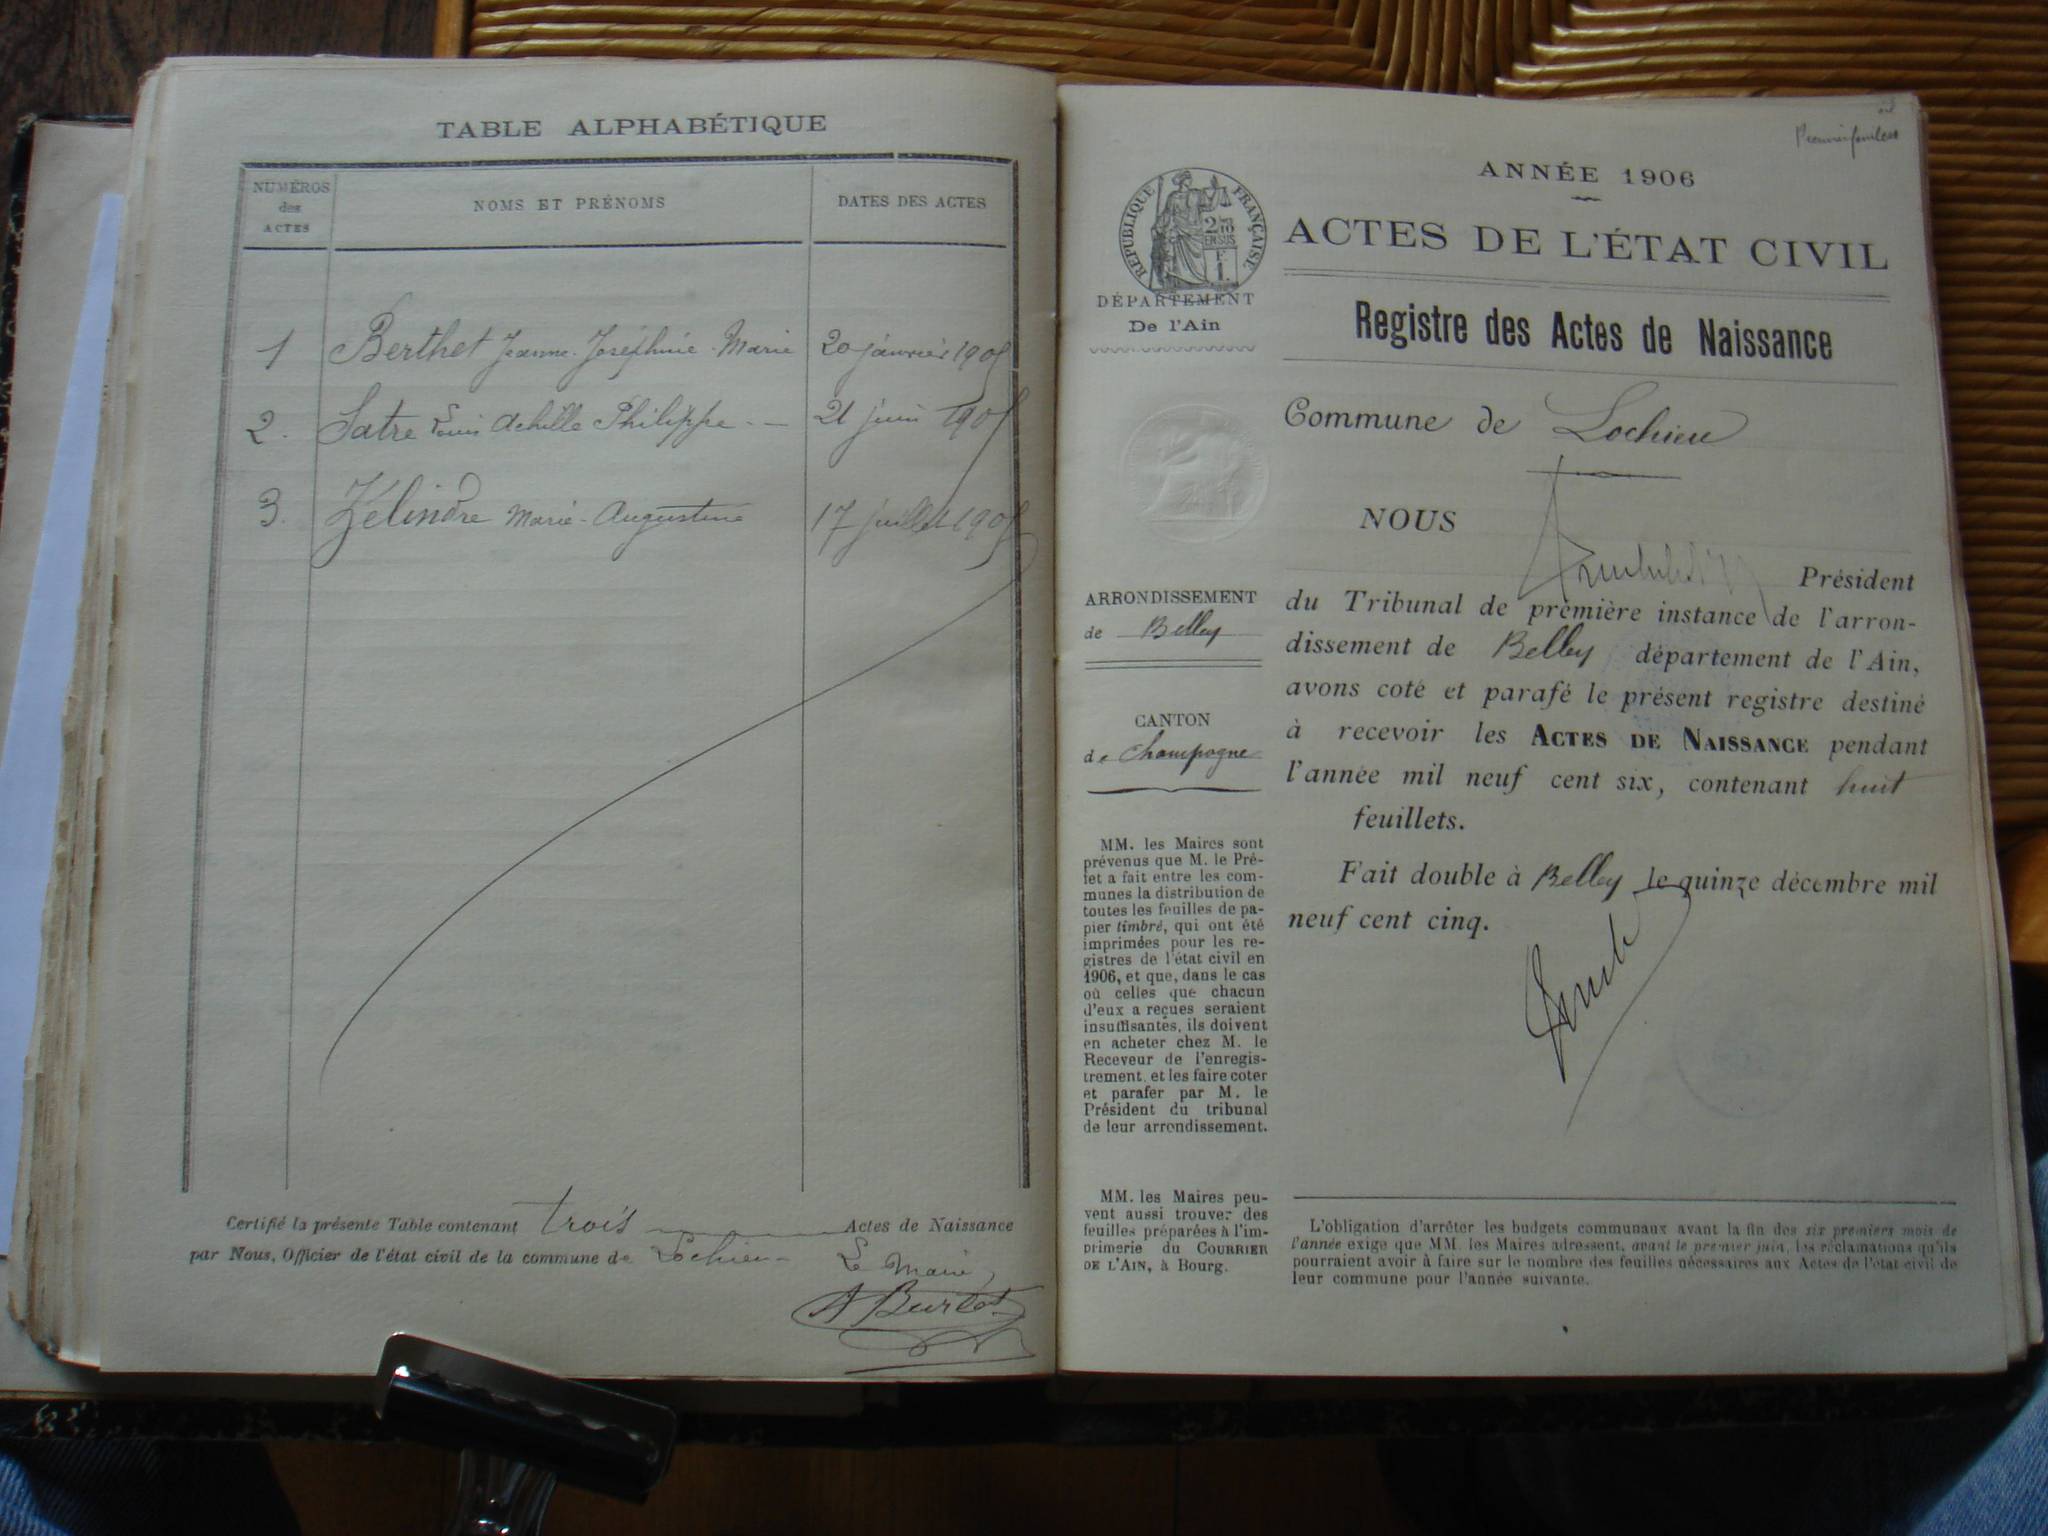 TABLE ALPHABÉTIQUE
NUMÉROS
des
ACTES
NOMS ET PRÉNOMS
DATES DES ACTES
1 Berthet Jeanne Joséphine Marie 20 janvier 1905
2. Satre Louis Achille Philippe 21 juin 1905
3. Zélindre Marie-Augustine 17 juillet 1905
Certifié la présente Table contenant trois Actes de Naissance
par Nous, Officier de l'état civil de la commune de Lochieu
Le Maire,
A Burlet
Premier feuillet
ANNÉE 1906
ACTES DE L'ÉTAT CIVIL
Registre des Actes de Naissance
RÉPUBLIQUE FRANÇAISE
2/10
EN SUS
F
1.
DÉPARTEMENT
De l'Ain
Commune de Lochieu
NOUS
Président
du Tribunal de première instance de l'arron-
dissement de Belley département de l'Ain,
avons coté et parafé le présent registre destiné
à recevoir les ACTES DE NAISSANCE pendant
l'année mil neuf cent six, contenant huit
feuillets.
Fait double à Belley le quinze décembre mil
neuf cent cinq.
ARRONDISSEMENT
de Belley
CANTON
de Champagne
MM. les Maires sont
prévenus que M. le Pré-
fet a fait entre les com-
munes la distribution de
toutes les feuilles de pa-
pier timbré, qui ont été
imprimées pour les re-
gistres de l'état civil en
1906, et que, dans le cas
où celles que chacun
d'eux a reçues seraient
insuffisantes, ils doivent
en acheter chez M. le
Receveur de l'enregis-
trement, et les faire coter
et parafer par M. le
Président du tribunal
de leur arrondissement.
MM. les Maires peu-
vent aussi trouver des
feuilles préparées à l'im-
primerie du COURRIER
DE L'AIN, à Bourg.
L'obligation d'arrêter les budgets communaux avant la fin des six premiers mois de
l'année exige que MM. les Maires adressent, avant le premier juin, les réclamations qu'ils
pourraient avoir à faire sur le nombre des feuilles nécessaires aux Actes de l'état civil de
leur commune pour l'année suivante.